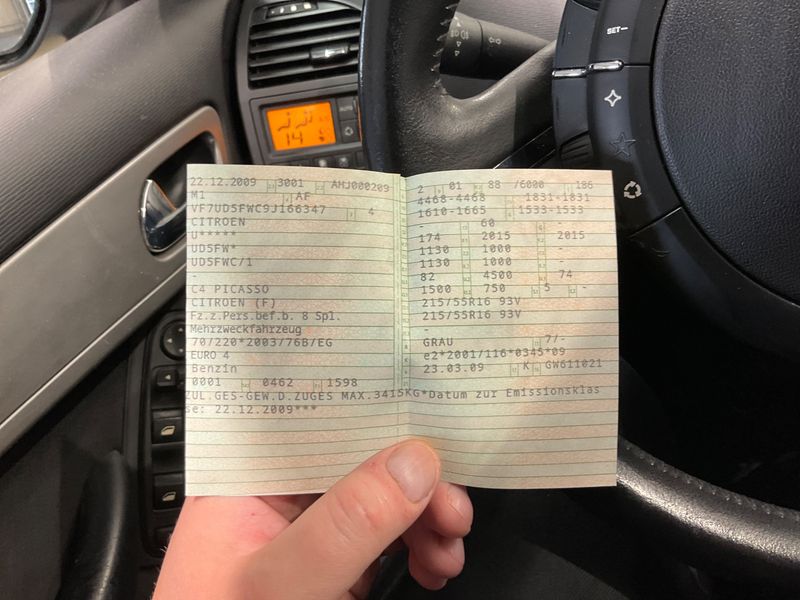 SET—
AUTO
14
22.12.2009 3001 AHJ000209
M1 AF
VF7UD5FWC9J166347 4
CITROEN
U*****
UD5FW*
UD5FWC/1
-
C4 PICASSO
CITROEN (F)
Fz.z.Pers.bef.b. 8 Spl.
Mehrzweckfahrzeug
70/220*2003/76B/EG
EURO 4
Benzin
0001 0462 1598
2 01 88 /6000 186
4468-4468 1831-1831
1610-1665 1533-1533
- 60
174 2015 2015
1130 1000 -
1130 1000 -
82 4500 74
1500 750 5 -
215/55R16 93V
215/55R16 93V
-
GRAU 7/-
e2*2001/116*0345*09
23.03.09 K GW611021
ZUL.GES-GEW.D.ZUGES MAX.3415KG*Datum zur Emissionsklas
se: 22.12.2009***